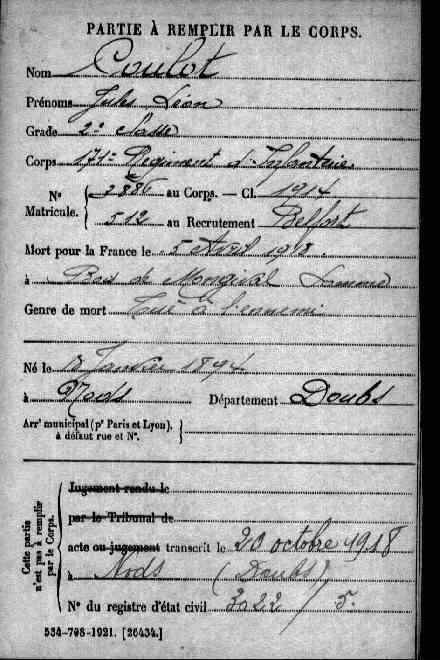 PARTIE À REMPLIR PAR LE CORPS.
Nom Coulot
Prénoms Jules Léon
Grade 2e Classe
Corps 171e Régiment d'Infanterie
No 2886 au Corps. — Cl. 1914
Matricule. 512 au Recrutement Belfort
Mort pour la France le 5 Avril 1918.
à Bois de Mongival Somme
Genre de mort Tué à l'ennemi
Né le Janvier 1894
à Nods Département Doubs
Arrt municipal (pr Paris et Lyon),
à défaut rue et No.
Cette partie
n'est pas à remplir
par le Corps.
Jugement rendu le
par le Tribunal de
acte ou jugement transcrit le 20 octobre 1918
à Nods (Doubs)
No du registre d'état civil 3022/5.
534-708-1921. [26434.]